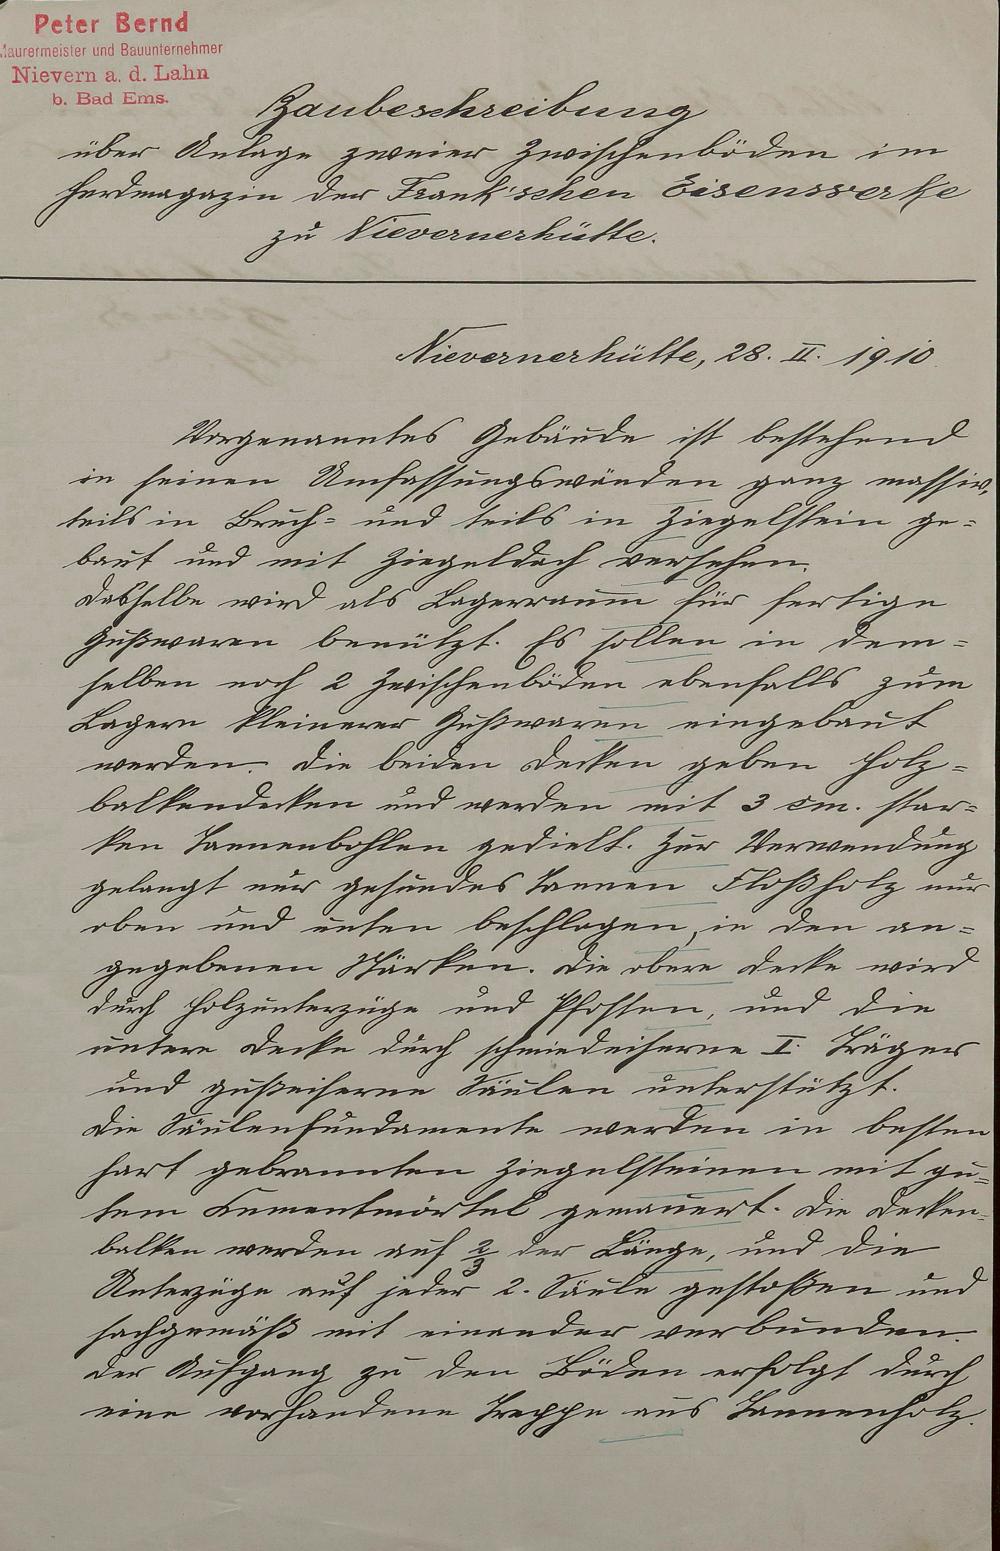 Peter Bernd
Maurermeister und Bauunternehmer
Nievern a. d. Lahn
b. Bad Ems.
Baubeschreibung
über Anlage zweier Zwischenböden im
Herdmagazin der Frank'schen Eisenwerke
zu Nievernerhütte.
Nievernerhütte, 28. II. 1910
Vorgenanntes Gebäude ist bestehend
in seinen Umfassungswänden ganz massiv,
teils in Bruch- und teils in Ziegelstein ge-
baut und mit Ziegeldach versehen.
Dasselbe wird als Lagerraum für fertige
Gußwaren benützt. Es sollen in dem-
selben noch 2 Zwischenböden ebenfalls zum
Lagern kleinerer Gußwaren eingebaut
werden. Die beiden Decken geben Holz-
balkendecken und werden mit 3 cm. star-
ken Tannenbohlen gedielt. Zur Verwendung
gelangt nur gesundes Tannen Floßholz nur
oben und unten beschlagen, in den an-
gegebenen Stärken. Die obere Decke wird
durch Holzunterzüge und Pfosten, und die
untere Decke durch schmiedeiserne I Träger
und gußeiserne Säulen unterstützt.
Die Säulenfundamente werden in besten
hart gebrannten Ziegelsteinen mit gu-
tem Zementmörtel gemauert. Die Decken-
balken werden auf 2/3 der Länge, und die
Unterzüge auf jeder 2. Säule gestoßen und
sachgemäß mit einander verbunden.
Der Aufgang zu den Böden erfolgt durch
eine vorhandene Treppe aus Tannenholz.